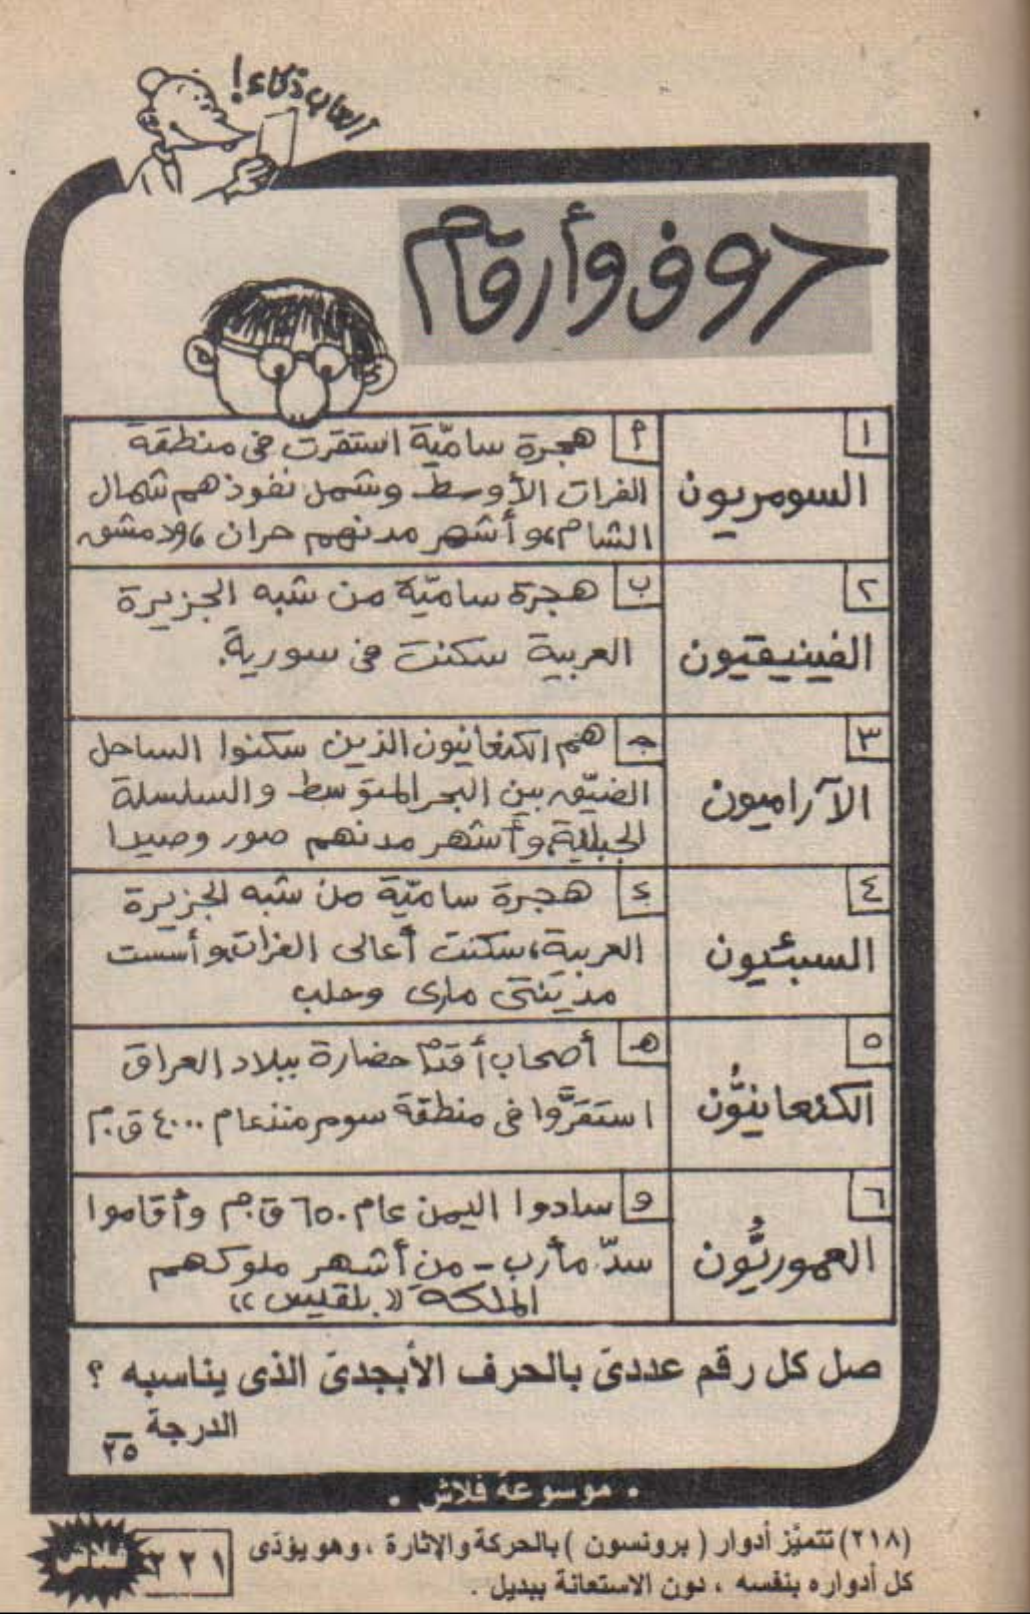 ألعاب ذكاء!
حروف وأرقام
١
السومريون
أ هجرة ساميّة استقرت فى منطقة
الفرات الأوسط وشمل نفوذهم شمال
الشام، وأشهر مدنهم حران، ودمشق
٢
الفينيقيون
ب هجرة ساميّة من شبه الجزيرة
العربية سكنت فى سورية.
٣
الآراميون
جـ هم الكنعانيون الذين سكنوا الساحل
الضيّق بين البحر المتوسط والسلسلة
الجبلية، وأشهر مدنهم صور وصيدا
٤
السبئيون
د هجرة ساميّة من شبه الجزيرة
العربية، سكنت أعالى الفرات، وأسست
مدينتى مارى وحلب
٥
الكنعانيُّون
هـ أصحاب أقدم حضارة ببلاد العراق
استقرَّوا فى منطقة سومر منذ عام ٤٠٠٠ ق.م
٦
العموريُّون
و سادوا اليمن عام ٦٥٠ ق.م وأقاموا
سدّ مأرب - من أشهر ملوكهم
الملكة «بلقيس»
صل كل رقم عددىّ بالحرف الأبجدىّ الذى يناسبه ؟
الدرجة ــ
٢٥
• موسوعة فلاش •
(٢١٨) تتميَّز أدوار ( برونسون ) بالحركة والإثارة ، وهو يؤدّى
كل أدواره بنفسه ، دون الاستعانة ببديل .
٢٢١
فلاش